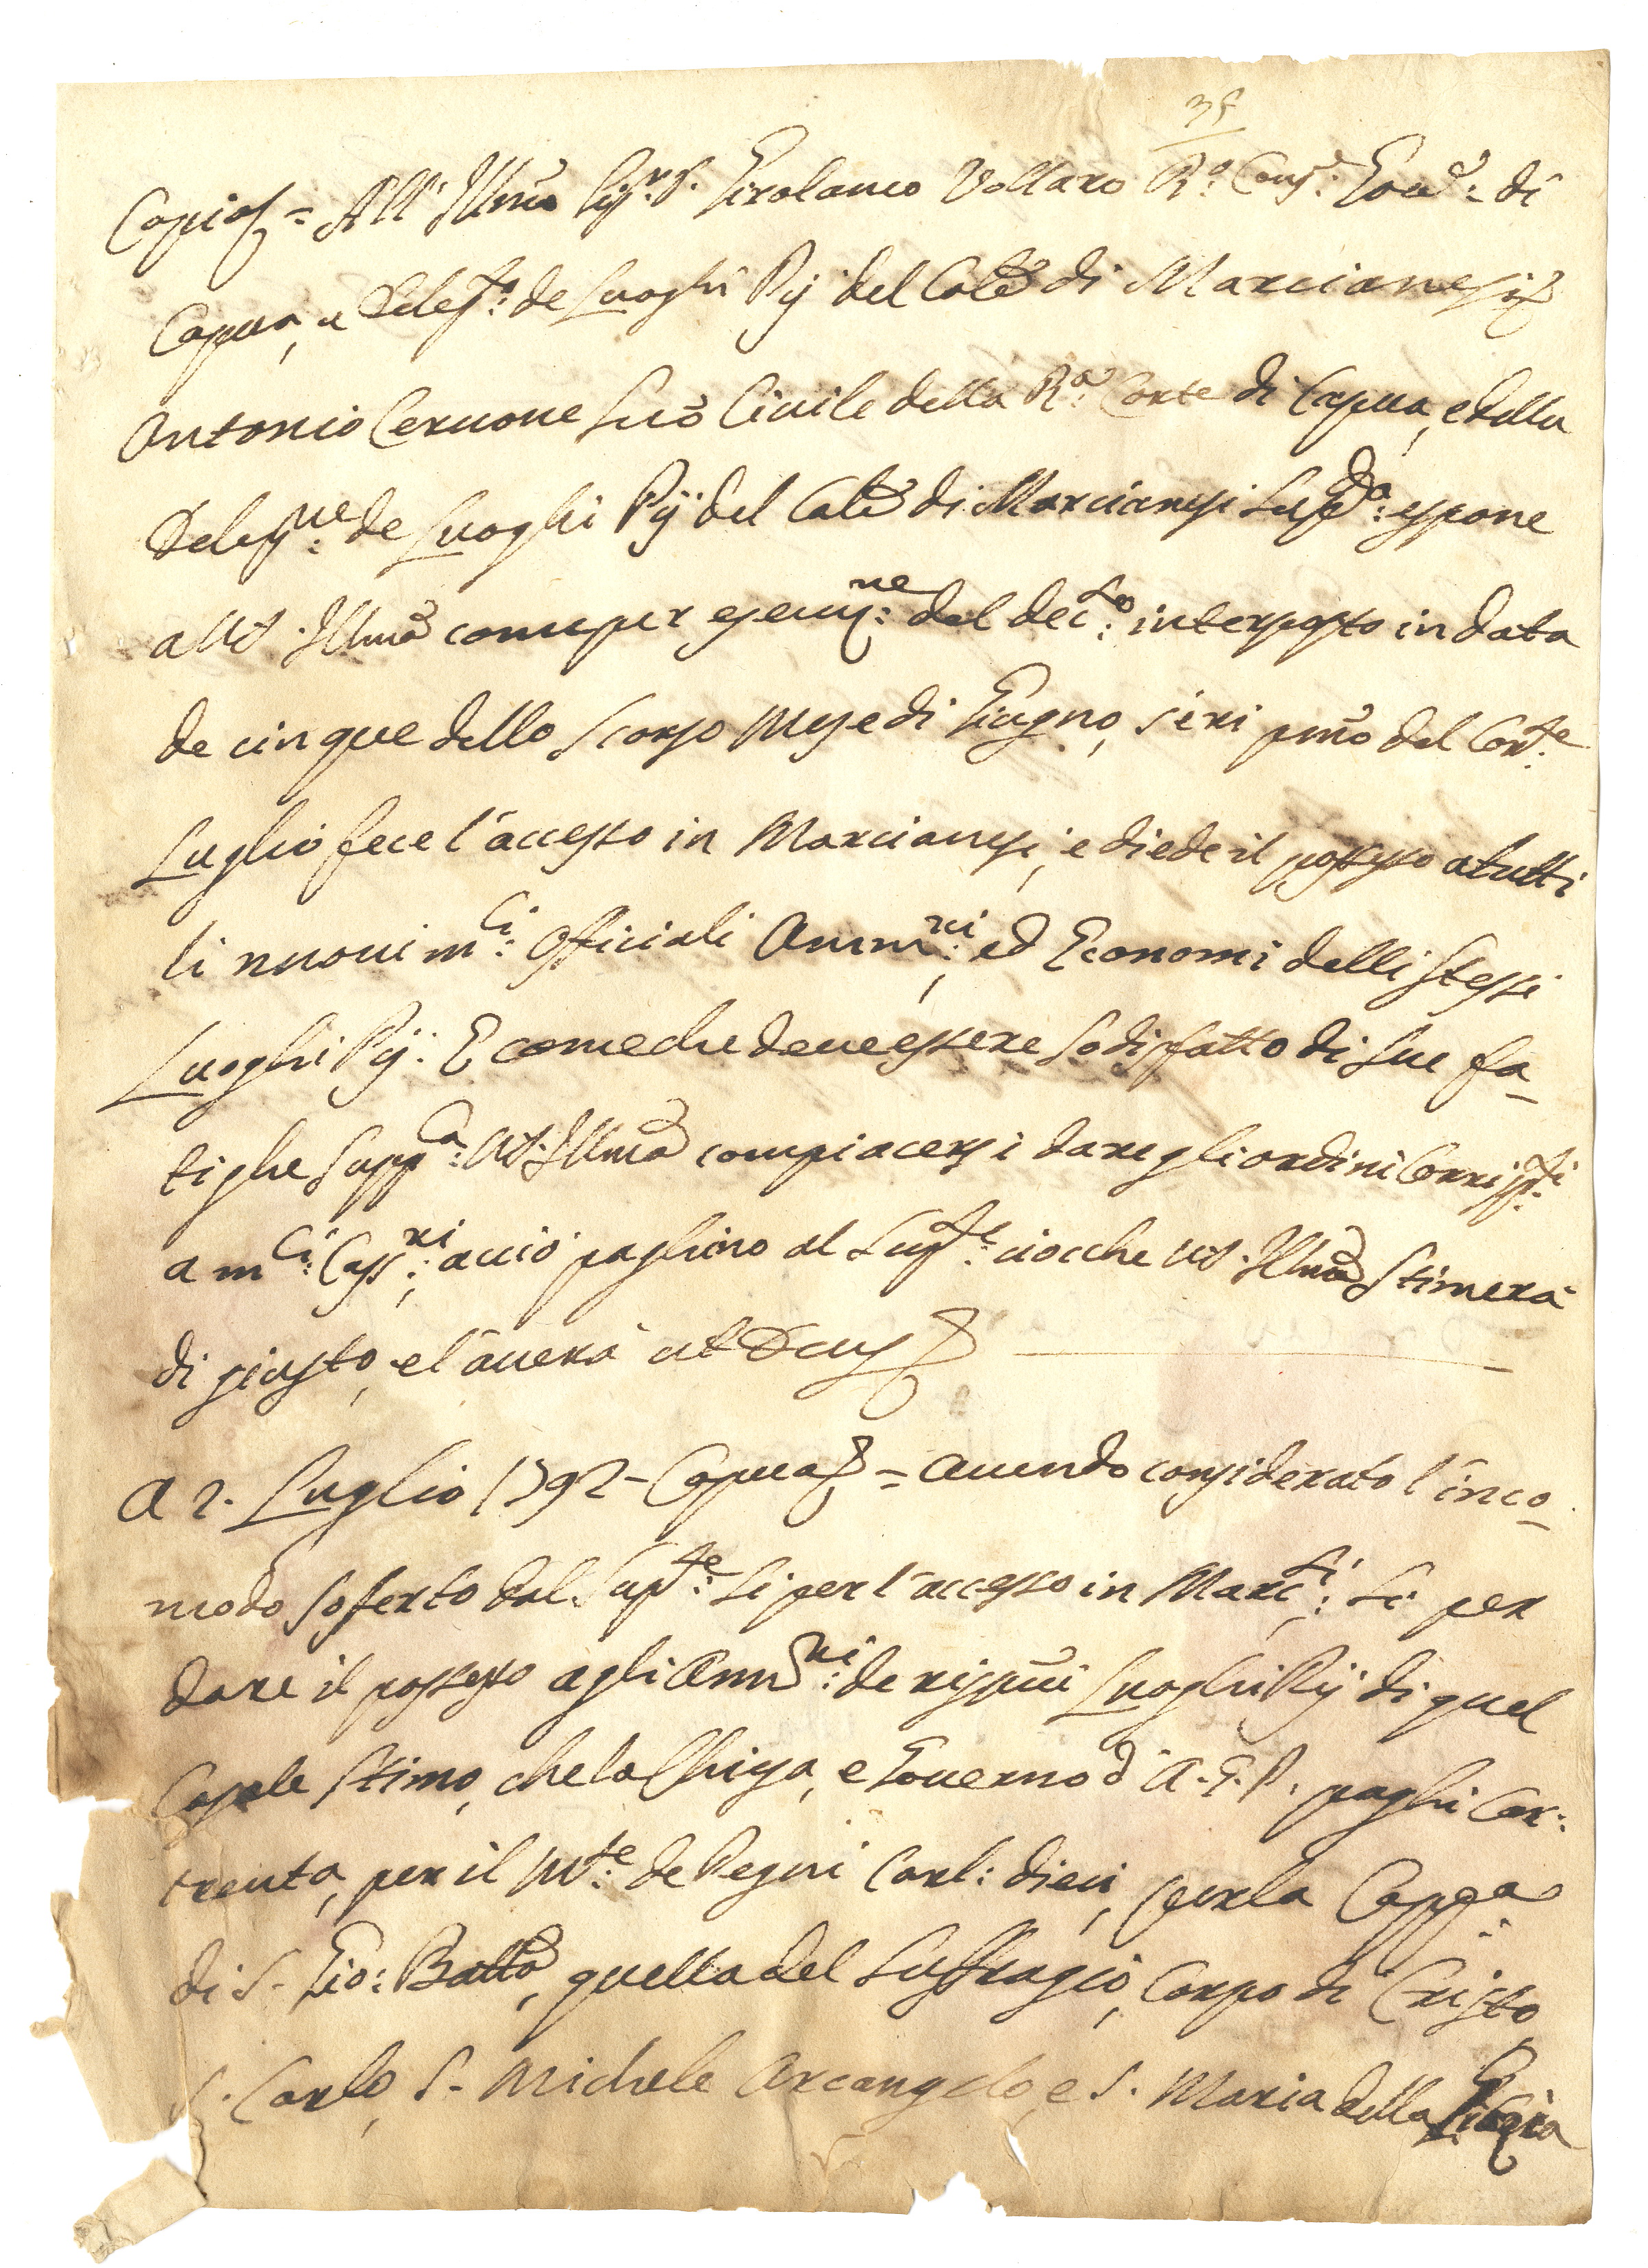 35
Copia = All' Illmo Sigr. D. Girolamo Vollaro Ro: Consre: Govre: di
Capua, e Delegto: de Luoghi Pij del Cale di Marcianesi
Antonio Cervone Scro Civile della Ra: Corte di Capua, e della
Delegne: de Luoghi Pij del Cale di Marcianesi Supda: espone
a VS. Illma come per esecuzne: del decto: interposto in data
de cinque dello scorso Mese di Giugno, jeri pmo del Corte:
Luglio fece l'accesso in Marcianesi, e diede il possesso a tutti
li nuovi mci: Officiali Ammri:, ed Economi delli stessi
Luoghi Pij. E come che deve essere sodisfatto di sue fa-
tighe suppca: VS. Illma compiacersi dare gli ordini Corrispti:
a mci: Cassri:, acciò paghino al Supte: ciocche VS. Illma stimerà
di giusto, e l'averà ut Deus
A 2. Luglio 1792 - Capua = Avendo considerato l'inco-
modo soferto dal Supte: sì per l'accesso in Marcsi:, sì per
dare il possesso agli Ammri: de rispvi Luoghi Pij di quel
Casale stimo, che la Chiesa, e Governo d' A. G. P. paghi Car:
trenta, per il Mte: de Pegni Carl: dieci, per la Cappa
di S. Gio: Batta, quella del Suffragio, Corpo di Cristo,
S. Carlo, S. Michele Arcangelo, e S. Maria della